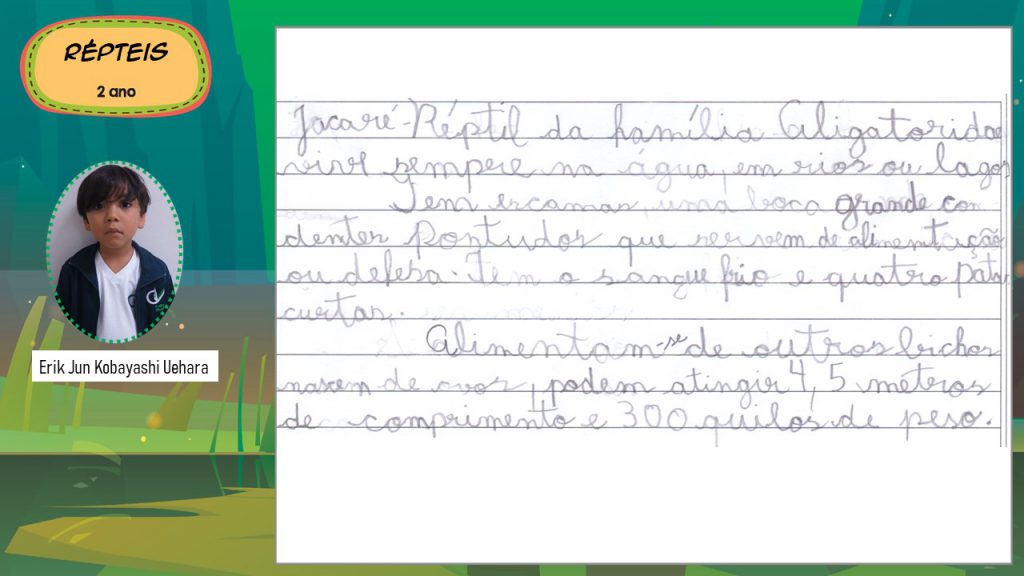 RÉPTEIS
2 ano
Erik Jun Kobayashi Uehara
Jacaré-Réptil da família Aligatoridae
vive sempere na água, em rios ou lagos
Tem escamas, uma boca grande com
dentes pontudos que servem de alimentação
ou defesa. Tem o sangue frio e quatro patas
curtas.
Alimentam-se de outros bichos
nascem de ovos, podem atingir 4,5 metros
de comprimento e 300 quilos de peso.